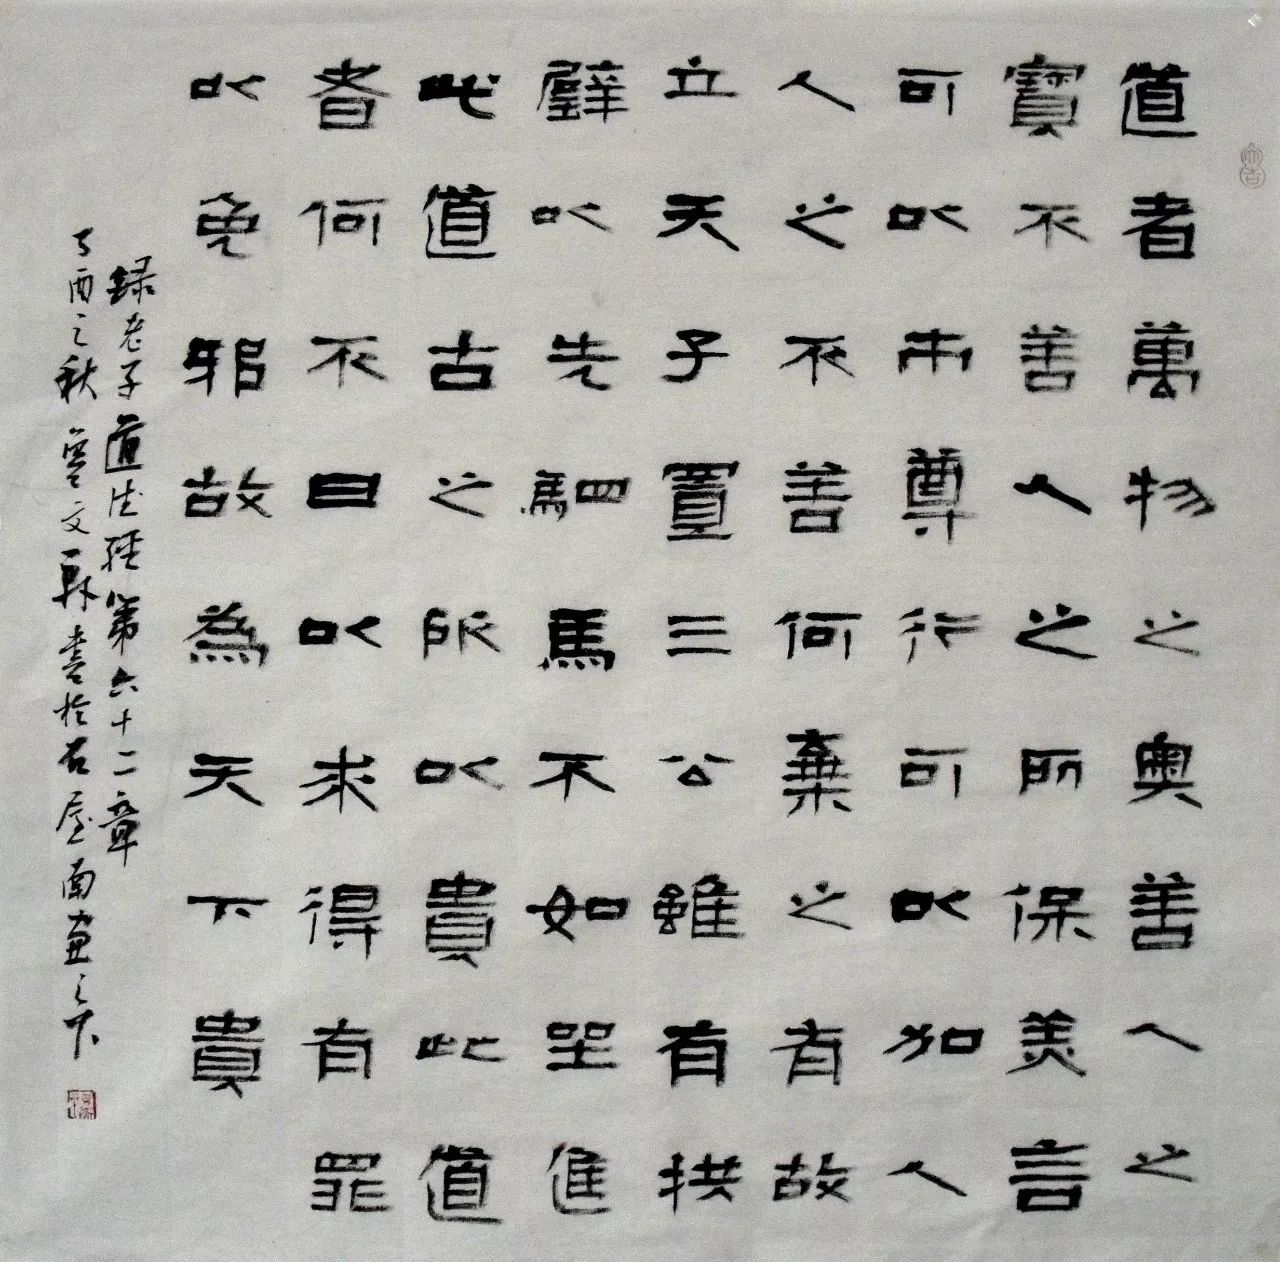 大吉
道者萬物之奧善人之
寶不善人之所保美言
可以市尊行可以加人
人之不善何棄之有故
立天子置三公雖有拱
璧以先駟馬不如坐進
此道古之所以貴此道
者何不曰以求得有罪
以免邪故為天下貴
録老子道德經第六十二章
丁酉之秋文書於屋南窗之下